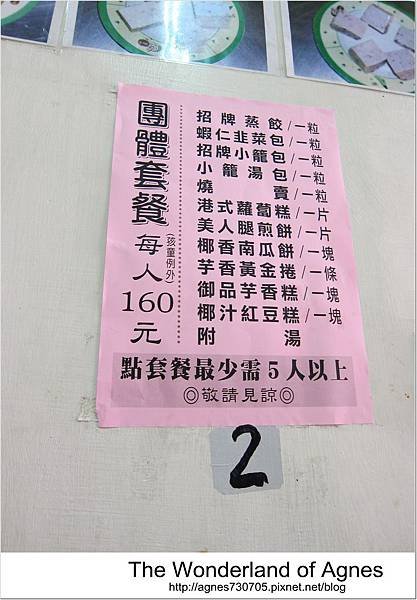 團體套餐 每人160元
(孩童例外)
招牌蒸餃/一粒
蝦仁韭菜包/一粒
招牌小籠包/一粒
小籠湯包/一粒
燒賣/一粒
港式蘿蔔糕/一片
美人腿煎餅/一片
椰香南瓜餅/一塊
芋香黃金捲/一條
御品芋香糕/一塊
椰汁紅豆糕/一塊
附湯
點套餐最少需5人以上
◎敬請見諒◎
2
The Wonderland of Agnes
http://agnes730705.pixnet.net/blog